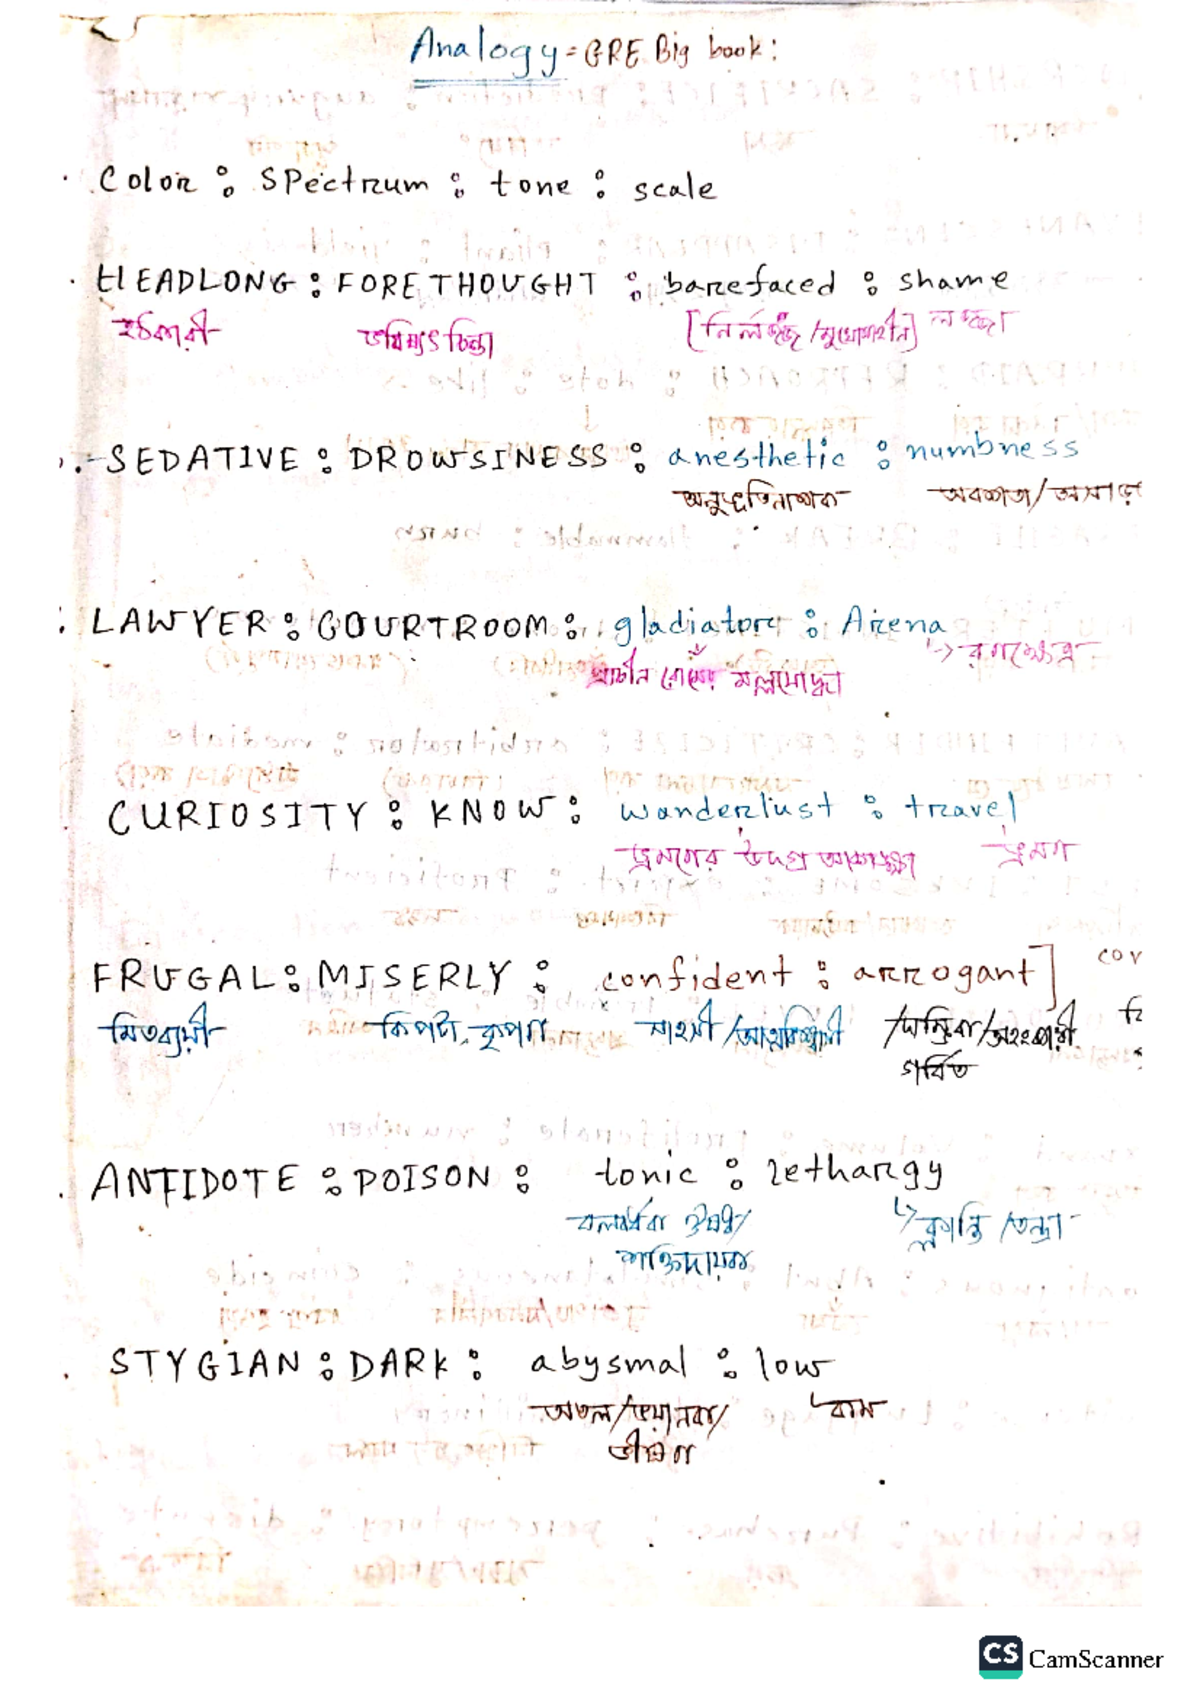 Analogy = GRE Big book:
Color : SPectrum : tone : scale
HEADLONG : FORETHOUGHT : barefaced : shame
হঠকারী ভবিষ্যৎ চিন্তা [নির্লজ্জ /মুখোশহীন] লজ্জা
SEDATIVE : DROWSINESS : anesthetic : numbness
অনুভূতিনাশক অবশতা/অসাড়
LAWYER : COURTROOM : gladiator : Arena
রণক্ষেত্র
প্রাচীন রোমের মল্লযোদ্ধা
CURIOSITY : KNOW : wanderlust : travel
ভ্রমণের উদগ্র আকাঙ্ক্ষা ভ্রমণ
FRUGAL : MISERLY : confident : arrogant] cov
মিতব্যয়ী কিপটা, কৃপণ সাহসী /আত্মবিশ্বাসী /দাম্ভিক/অহংকারী
গর্বিত
ANTIDOTE : POISON : tonic : lethargy
বলবর্ধক ঔষধ/ ক্লান্তি /তন্দ্রা
শক্তিদায়ক
STYGIAN : DARK : abysmal : low
অতল/ভয়ানক/ কম
ভীষণ
CS CamScanner